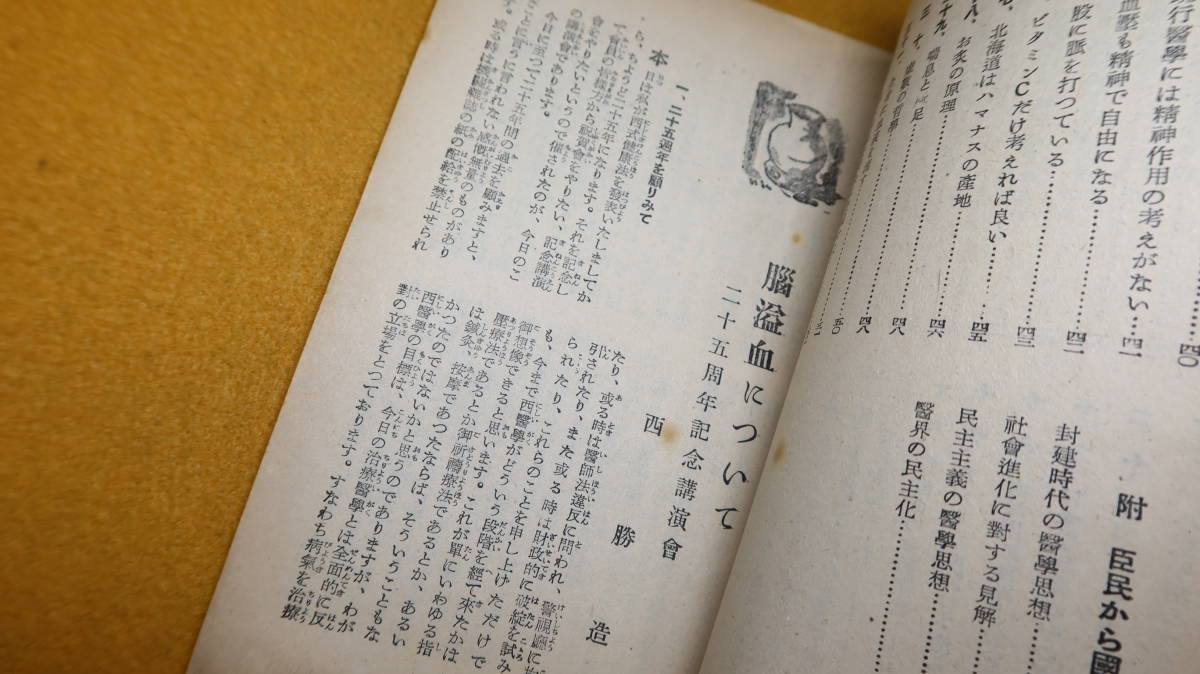 行醫學には精神作用の考えがない…四一
血壓も精神で自由になる…………四二
股に脈を打つている…………四三
ビタミンCだけ考えれば良い……四五
北海道はハマナスの產地…………四六
お灸の原理…………四八
十九、喘息と
附 臣民から國
封建時代の醫學思想
社會進化に對する見解
民主主義の醫學思想
醫界の民主化
腦溢血について
二十五周年記念講演會
西 勝 造
一、二十五週年を顧りみて
本日は私が西式健康法を發表いたしましてか
ら、ちようど二十五年になります。それを記念し
て會員の皆樣方から祝賀會をやりたい、記念講演
會をやりたいというので催されたのが、今日のこ
の講演會であります。
今日に至つて二十五年間の過去を顧みますと、
まことに言うに言われない感慨無量のものがあり
ます。或る時は機關雜誌の紙の配給を禁止せられ
たり、或る時は醫師法違反に問われ、警視廳に
引されたり、また或る時は財政的に破綻を試み
られたり、これらのことを申し上げただけで
も、今まで西醫學がどういう段階を經て來たかは
御想像できると思います。これが單にいわゆる指
壓療法であるとか御祈禱療法であるとか、あるい
は鍼灸、按摩であつたならば、そういうこともな
かつたのではないかと思うのでありますが、わが
西醫學の目標は、今日の治療醫學とは全面的に反
對の立場をとつております。すなわち病氣を治療